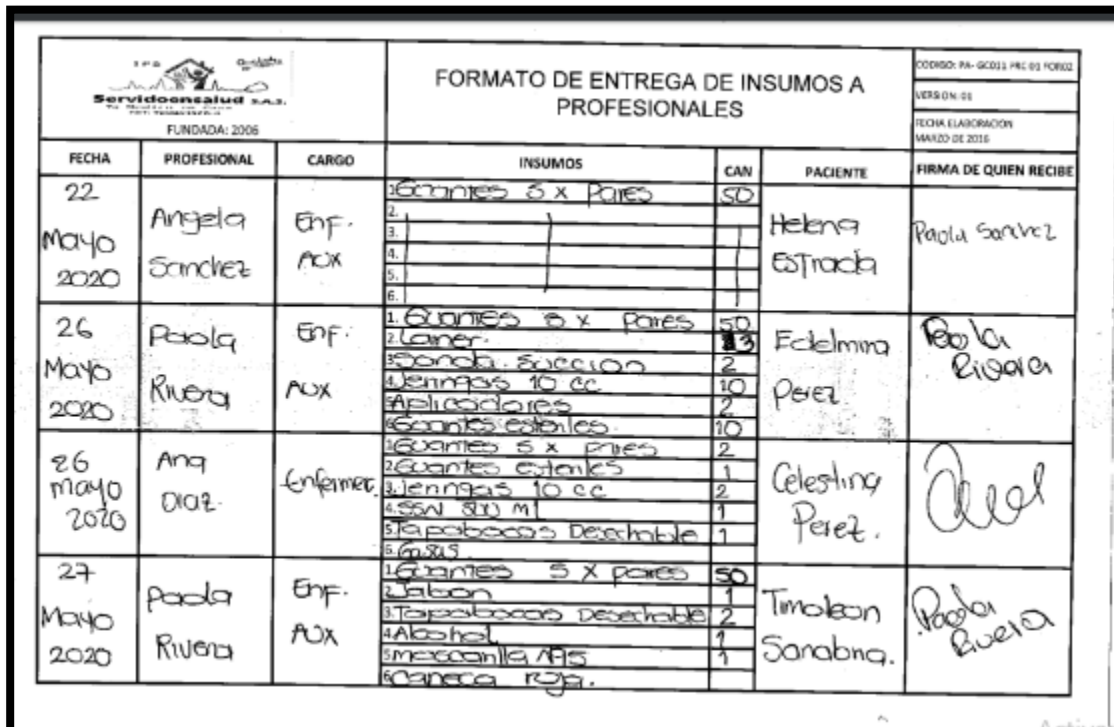 IPS
Servidoensalud S.A.S.
FUNDADA: 2006
FORMATO DE ENTREGA DE INSUMOS A
PROFESIONALES
CODIGO: PA- GC011 PRC 01 FOR02
VERSION: 01
FECHA ELABORACION
MARZO DE 2016
FECHA PROFESIONAL CARGO INSUMOS CAN PACIENTE FIRMA DE QUIEN RECIBE
22 Mayo 2020
Angela Sanchez
Enf. AUX
1. Guantes S x Pares 50
2.
3.
4.
5.
6.
Helena Estrada
Paola Sanchez
26 Mayo 2020
Paola Rivera
Enf. AUX
1. Guantes S x Pares 50
2. Lainer. 13
3. Sonda. Succion 2
4. Jeringas 10 cc 10
5. Aplicadores 2
6. Guantes esteriles. 10
Edelmira Perez
Paola Rivera
26 mayo 2020
Ana Diaz.
Enfermer.
1. Guantes S x pares 2
2. Guantes esteriles 1
3. Jeringas 10 cc 2
4. SSN 500 ml 1
5. Tapabocas Desechable 1
6. Gasas.
Celestina Perez.
27 Mayo 2020
Paola Rivera
Enf. AUX
1. Guantes S X pares 50
2. Jabon 1
3. Tapabocas Desechable 2
4. Alcohol 1
5. mascarilla N95 1
6. Caneca roja.
Timoleon Sanabria.
Paola Rivera